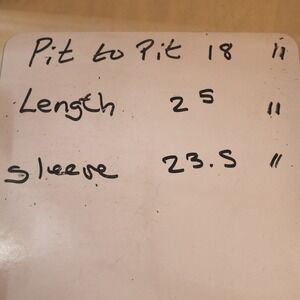 Pit to Pit 18 "
Length 25 "
sleeve 23.5 "